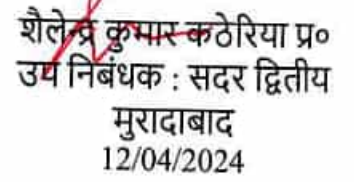 शैलेन्द्र कुमार कठेरिया प्र०
उप निबंधक : सदर द्वितीय
मुरादाबाद
12/04/2024